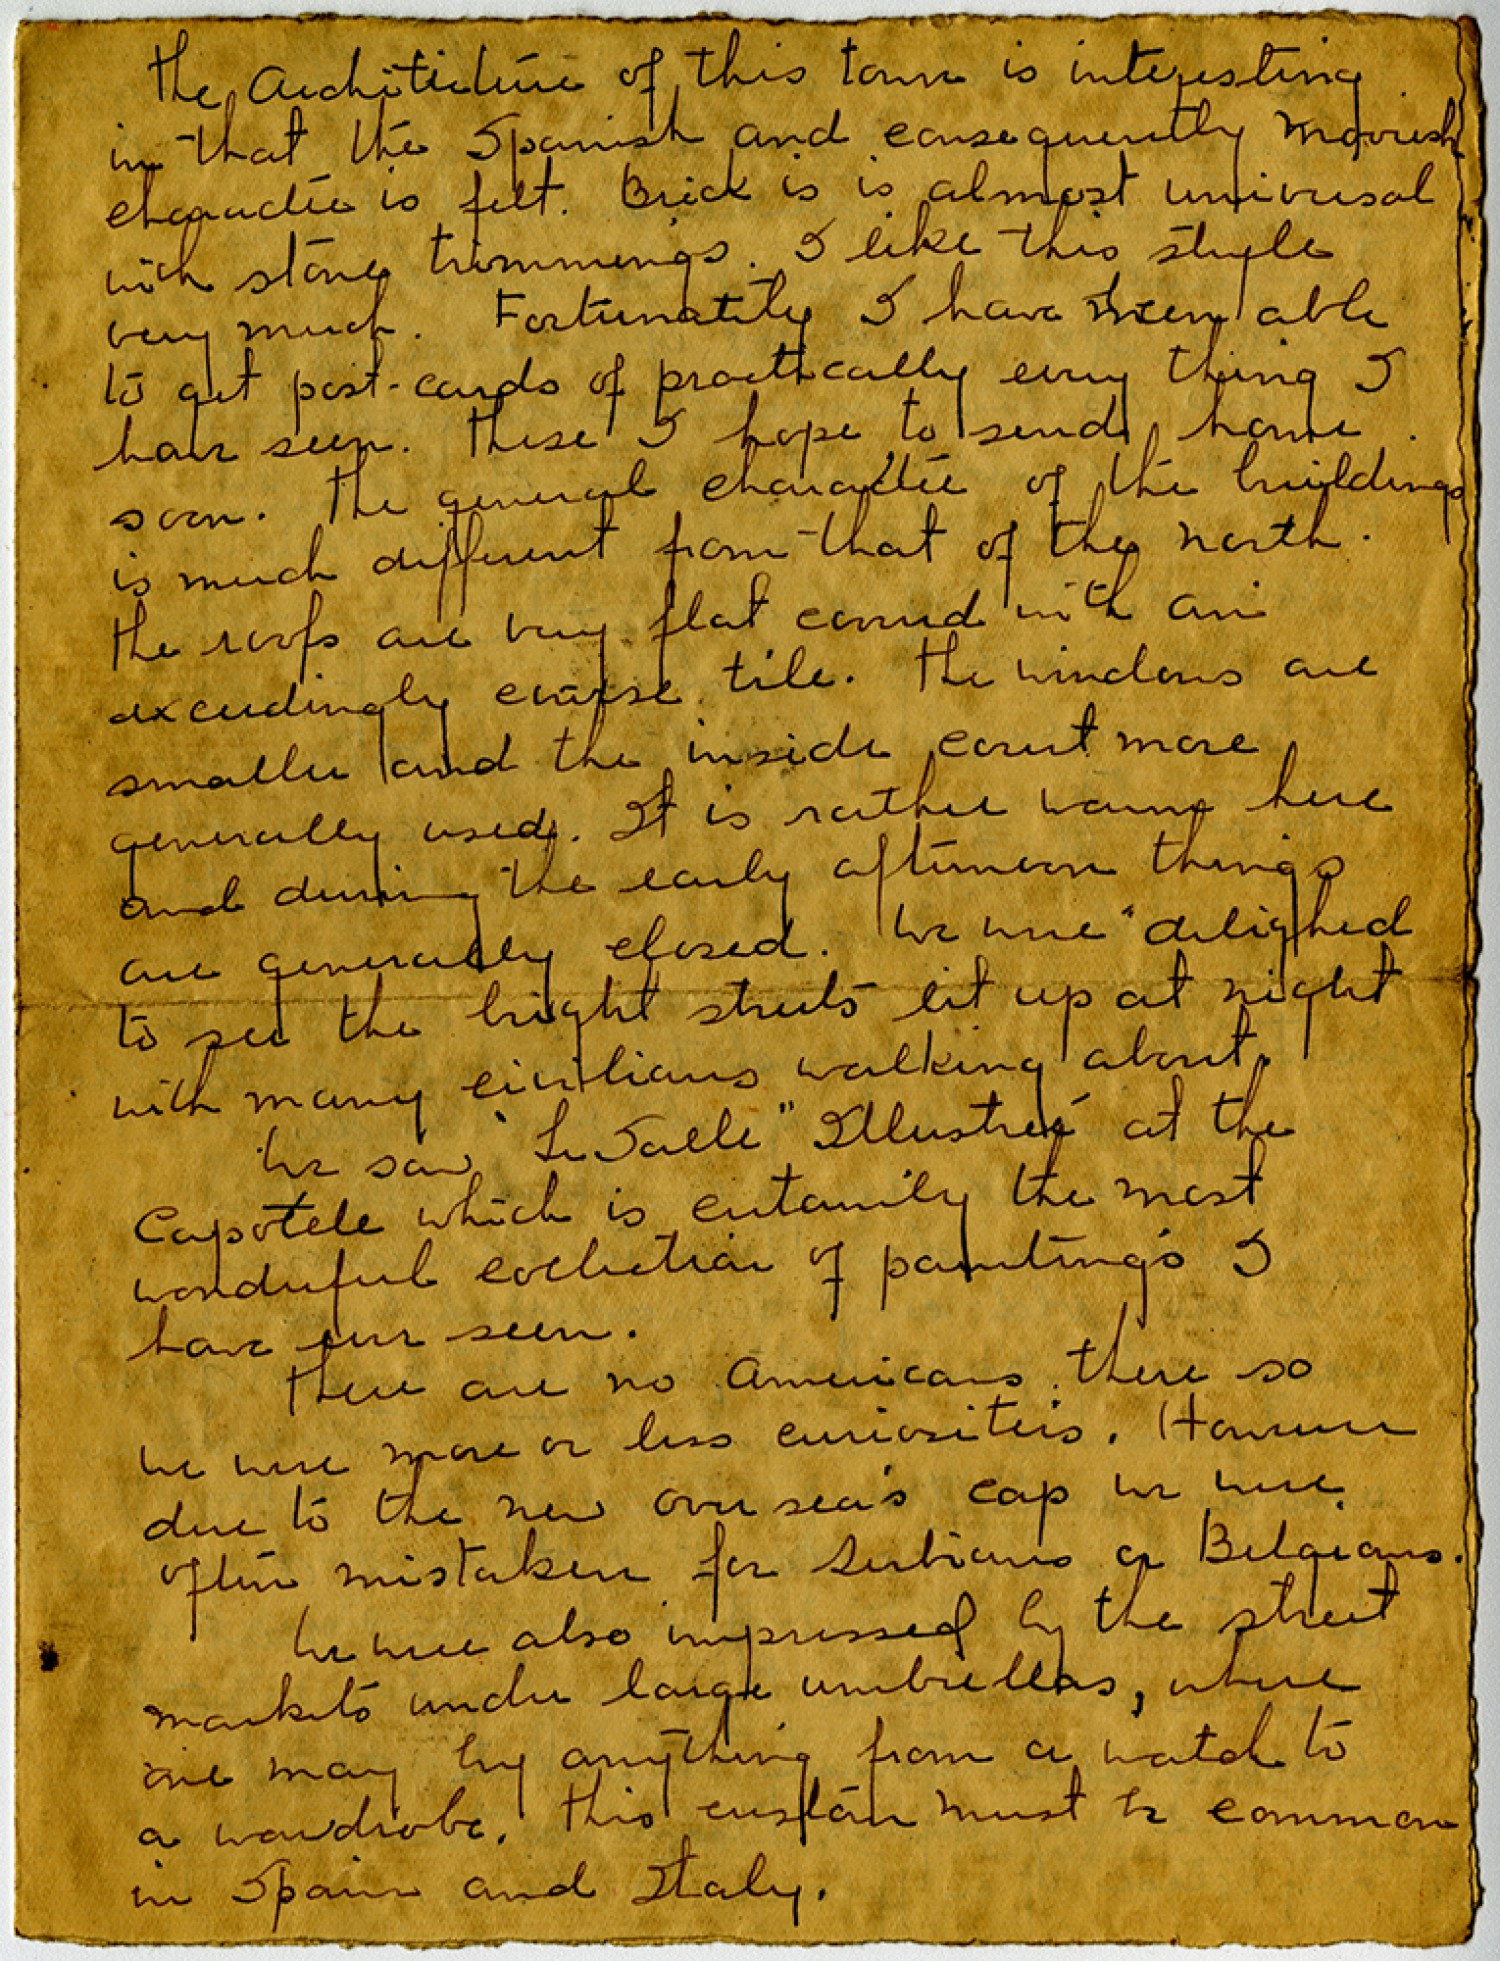 The Architecture of this town is interesting
in that the Spanish and consequently Moorish
character is felt. Brick is is almost universal
with stone trimmings. I like this style
very much. Fortunately I have been able
to get post-cards of practically every thing I
have seen. These I hope to send home
soon. The general character of the buildings
is much different from that of the north.
The roofs are very flat covered with an
exceedingly coarse tile. The windows are
smaller and the inside court more
generally used. It is rather warm here
and during the early afternoon things
are generally closed. We were delighed
to see the bright streets lit up at night
with many civilians walking about.
We saw "La Salle" Illustreé at the
Capotele which is certainily the most
wonderful collection of paintings I
have ever seen.
There are no Americans there so
we were more or less curiosities. However
due to the new over sea's cap we were
often mistaken for Serbians or Belgians.
We were also impressed by the street
markets under large umbrellas, where
one may by anything from a watch to
a wardrobe. This custom must be common
in Spain and Italy.